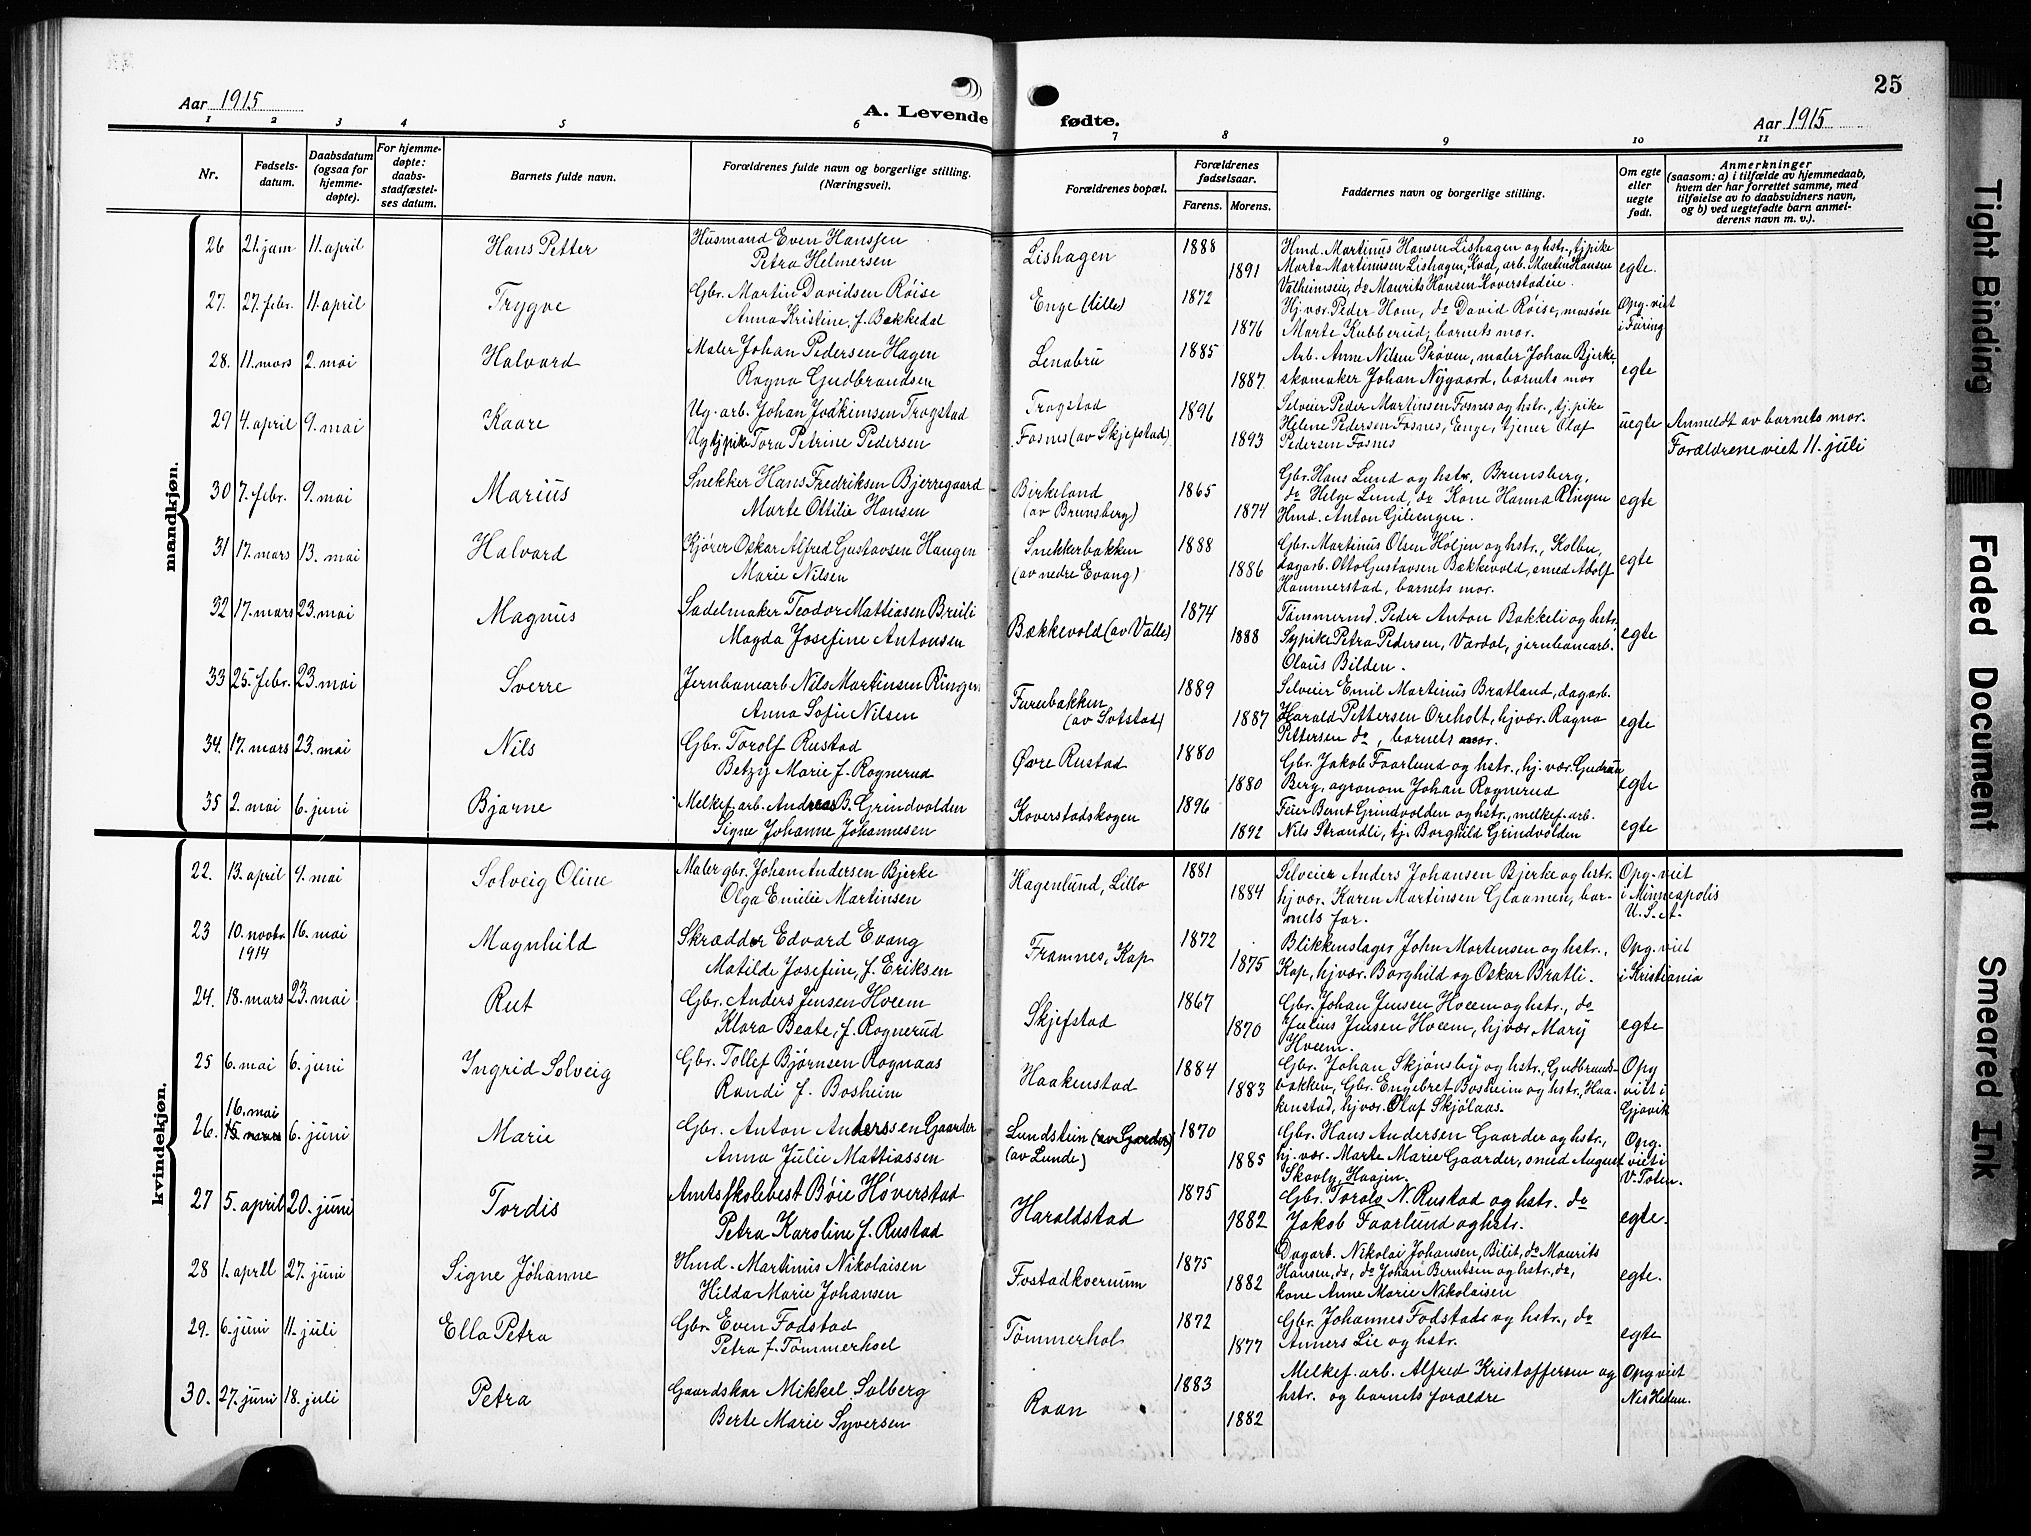 25
Aar 1915
A. Levende fødte.
Aar 1915
1 2 3 4 5 6 7 8 9 10 11
Nr.
Fødsels-
datum.
Daabsdatum
(ogsaa for
hjemme-
døpte).
For hjemme-
døpte:
daabs-
stadfæstel-
ses datum.
Barnets fulde navn.
Forældrenes fulde navn og borgerlige stilling.
(Næringsvei).
Forældrenes bopæl.
Forældrenes
fødselsaar.
Farens. Morens.
Faddernes navn og borgerlige stilling.
Om egte
eller
uegte
født.
Anmerkninger
(saasom: a) i tilfælde av hjemmedaab,
hvem der har forrettet samme, med
tilføielse av to daabsvidners navn,
og b) ved uegtefødte barn anmel-
derens navn m. v.).
mandkjøn.
26 21. jan 11. april Hans Petter
Husmand Even Hanssen
Petra Helmersen
Lishagen 1888 1891
Hmd. Martinus Hansen Lishagen og hstr., tj.pike
Marta Martinusen Lishagen, Kval, arb. Martin Hansen
Valheimseie, do Maurits Hansen Koverstadeie.
egte.
27. 27. febr. 11. april Trygve
Gbr. Martin Davidsen Røise
Anna Kristine f. Bakkedal
Enge (lille) 1872 1876
Hj.vær. Peder Hom, do David Røise, massøse
Marte Kubberud, barnets mor.
Opg. viet
i Faring
28. 11. mars 2. mai Halvard
Maler Johan Pedersen Hagen
Ragna Gudbrandsen
Lenabru 1885 1887
Arb. Anne Nilsen Prøven, maler Johan Bjerke,
skomaker Johan Nygaard, barnets mor
egte
29 4. april 9. mai Kaare
Ug. arb. Johan Joakimsen Trogstad
Ug tjpike Tora Petrine Pedersen
Trogstad
Fosnes (av Skjefstad)
1896 1893
Selveier Peder Martinsen Fosnes og hstr., tj.pike
Helene Pedersen Fosnes, Enge, tjener Olaf
Pedersen Fosnes
uegte
Anmeldt av barnets mor.
Forældrene viet 11. juli
30 7. febr. 9. mai Marius
Snekker Hans Fredriksen Bjerregaard
Marte Ottilie Hansen
Birkeland
(av Brunsberg)
1865 1874
Gbr. Hans Lund og hstr. Brunsberg,
do Helge Lund, do Kone Hanna Ringen
Hmd. Anton Gilvengen.
egte
31 17. mars 13. mai Halvard
Kjører Oskar Alfred Gustavsen Haugen
Marie Nilsen
Snekkerbakken
(av nedre Evang)
1888 1886
Gbr. Martinus Olsen Høljen og hstr., Kolbu,
dagarb. Otto Gustavsen Bækkevold, smed Adolf
Hammerstad, barnets mor.
egte
32 17. mars 23. mai Magnus
Sadelmaker Teodor Mattiasen Breili
Magda Josefine Antonsen
Bækkevold (av Valle)
1874 1888
Tømmermd. Peder Anton Bakkeli og hstr.
Sypike Petra Pedersen, Vardal, jernbanearb.
Olaus Bilden.
egte
33 25. febr. 23. mai Sverre
Jernbanearb Nils Martinsen Ringen
Anna Sofie Nilsen
Furubakken
(av Sotstad)
1889 1887
Selveier Emil Martinius Bratland, dagarb.
Harald Pettersen Oreholt, hj.vær. Ragna
Pettersen do, barnets mor.
egte
34. 17. mars 23. mai Nils
Gbr. Torolf Rustad
Betzy Marie f. Rognerud
Øvre Rustad 1880 1880
Gbr. Jakob Faarlund og hstr., hj.vær. Gudrun
Berg, agronom Johan Rognerud
egte
35 2. mai 6. juni Bjarne
Melkef. arb. Andreas B. Grindvolden
Signe Johanne Johannesen
Koverstadskogen 1896 1892
Feier Bernt Grindvolden og hstr., melkef. arb.
Nils Strandli, tj. Borghild Grindvolden
egte
kvindekjøn.
22. 13. april 9. mai Solveig Oline
Maler gbr. Johan Andersen Bjerke
Olga Emilie Martinsen
Hagenlund, Lillo 1881 1884
Selveier Anders Johansen Bjerke og hstr.
hj.vær. Karen Martinsen Glaamen, bar-
nets far.
Opg. viet
i Minneapolis
U.S.A.
23 10. novbr. 1914 16. mai Magnhild
Skrædder Edvard Evang
Matilde Josefine, f. Eriksen
Framnes, Kap 1872 1875
Blikkenslager John Mortensen og hstr.,
Kap, hj.vær. Borghild og Oskar Bratli.
Opg. viet
i Kristiania
24. 18. mars 23. mai Rut
Gbr. Anders Jensen Hveem
Klara Beate, f. Rognerud
Skjefstad 1867 1870
Gbr. Johan Jensen Hveem og hstr., do
Julius Jensen Hveem, hj.vær Mary
Hveem.
egte
25 6. mai 6. juni Ingrid Solveig
Gbr. Tollef Bjørnsen Rognaas
Randi f. Bosheim
Haakenstad 1884 1883
Gbr. Johan Skjønsby og hstr., Gudbrands-
bakken, Gbr. Engebret Bosheim og hstr., Haa-
kenstad, hj.vær. Olaf Skjølaas.
Opg
viet i
Gjøvik
26. 16. mai 15 mars 6. juni Marie
Gbr. Anton Anderssen Gaarder
Anna Julie Mattiassen
Lundstein (av Gaarder)
(av Lunde)
1870 1885
Gbr. Hans Andersen Gaarder og hstr.,
hj.vær. Marte Marie Gaarder, smed August
Skavly, Haajen.
Opg.
viet i
V. Toten.
27 5. april 20. juni Tordis
Amtsskolebest Bøie Høverstad
Petra Karoline f. Rustad
Haraldstad 1875 1882
Gbr. Torols N. Rustad og hstr. do
Jakob Faarlund og hstr.
egte.
28 1. april 27. juni Signe Johanne
Hmd. Martinus Nikolaisen
Hilda Marie Johansen
Fostadkvernum 1875 1882
Dagarb. Nikolai Johansen, Bilit, do Maurits
Hansen, do, do Johan Berntsen og hstr., do,
kone Anne Marie Nikolaisen
egte.
29. 6. juni 11. juli Ella Petra
Gbr. Even Fodstad
Petra f. Tømmerhol
Tømmerhol 1872 1877
Gbr. Johannes Fodstad og hstr., do
Anners Lie og hstr.
egte
30. 27. juni 18. juli Petra
Gaardskar Mikkel Solberg
Berte Marie Syversen
Raan 1883 1882
Melkef. arb. Alfred Kristoffersen og
hstr. og barnets forældre
Opg viet
Nes Hedem.
Tight Binding
Faded Document
Smeared Ink